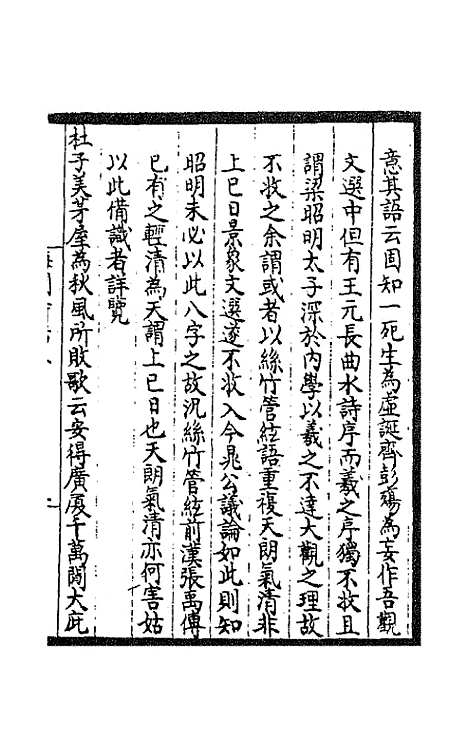 意其語云固知一死生為虛誕齊彭殤為妄作吾觀
文選中但有王元長曲水詩序而羲之序獨不收且
謂梁昭明太子深於内學以羲之不達大觀之理故
不收之余謂或者以絲竹管絃語重復天朗氣清非
上巳日景象文選遂不收入今晁公議論如此則知
昭明未必以此八字之故沉絲竹管絃前漢張禹傳
已有之輕清為天謂上巳日也天朗氣清亦何害姑
以此備識者詳覽
杜子美茅屋為秋風所敗歌云安得廣厦千萬間大庇